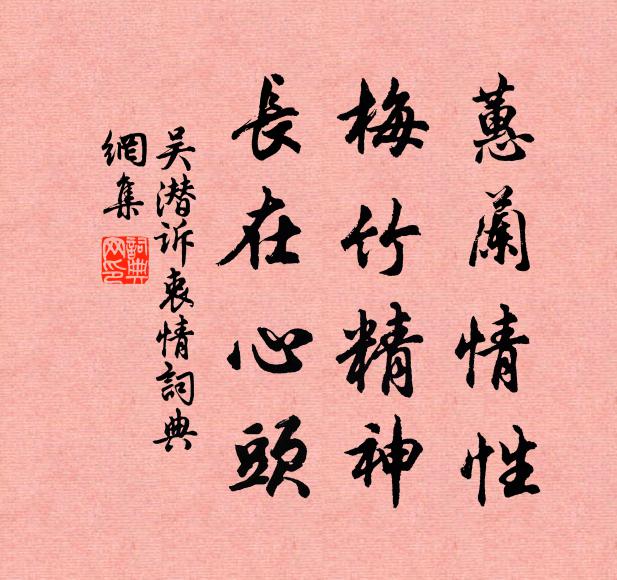 蕙蘭情性
梅竹精神
長在心頭
吴潜诉衷情詞典
網集
詞典
网印